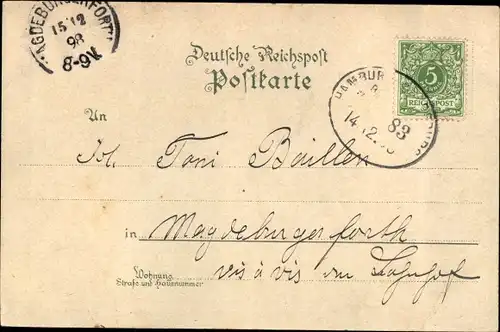 MAGDEBURGERFORTH
15 12
98
8-9V.
Deutsche Reichspost
Postkarte
5
REICHSPOST
HAMBURG
83
14 12
An
Toni Baillen
in Magdeburgerforth
vis à vis vom Bahnhof
Wohnung
Straße und Hausnummer